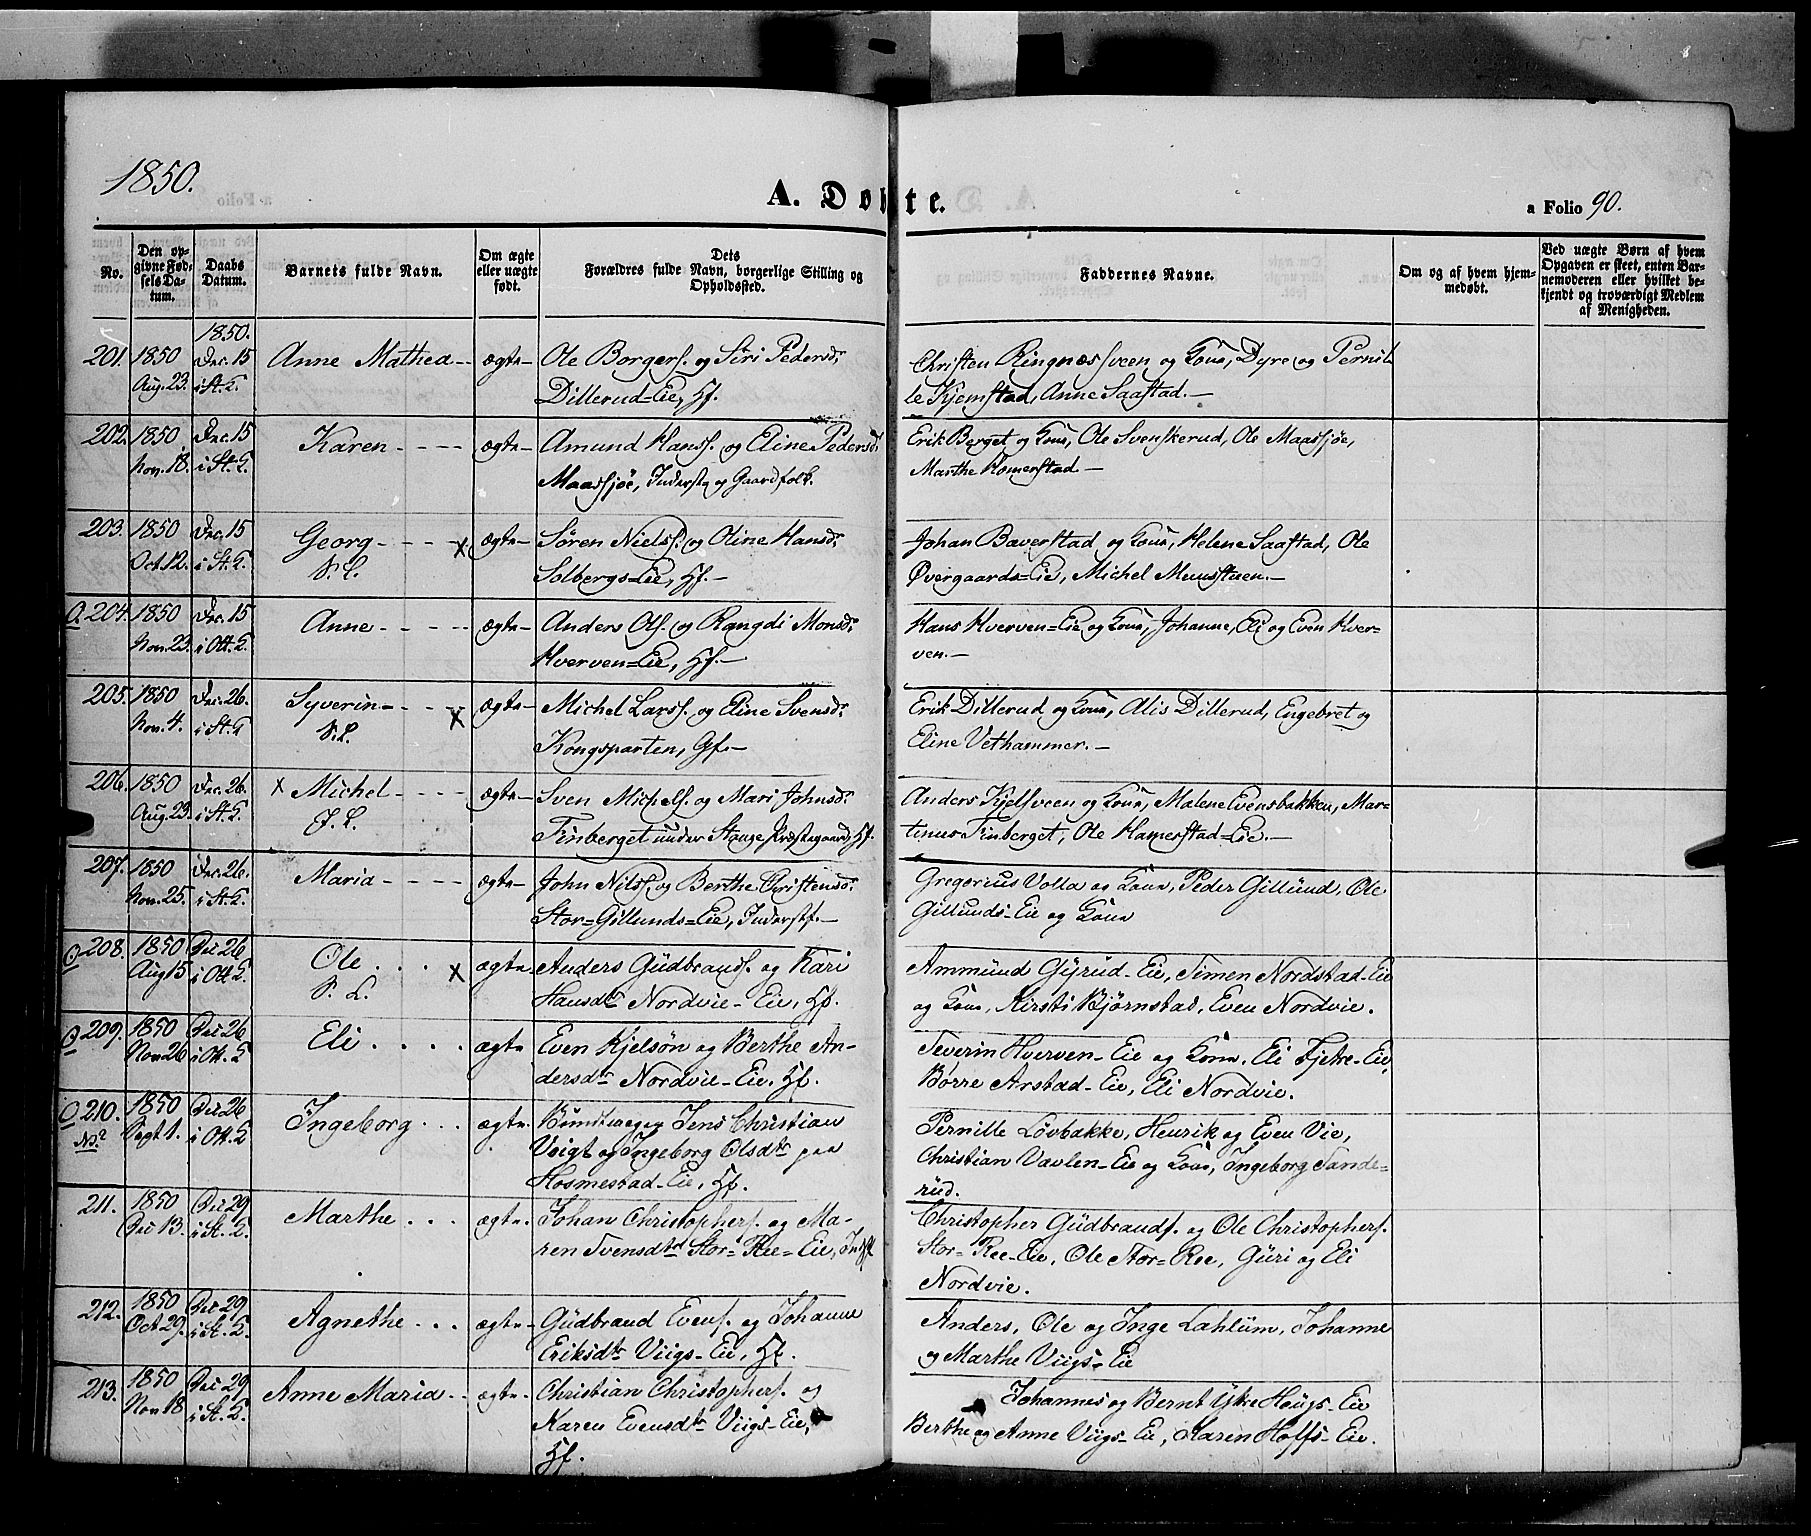 1850.
A. Døbte.
a Folio 90.
No.
Den op-
givne Fød-
sels Da-
tum.
Daabs
Datum.
Barnets fulde Navn.
Om ægte
eller uægte
født.
Dets
Forældres fulde Navn, borgerlige Stilling og
Opholdssted.
Faddernes Navne.
Om og af hvem hjem-
medøbt.
Ved uægte Børn af hvem
Opgaven er skeet, enten Bar-
nemoderen eller hvilket be-
kjendt og troværdigt Medlem
af Menigheden.
1850.
201. 1850 Dec. 15 Anne Mathea ægte Ole Borgers. og Siri Pedersd. Christen Ringnæssveen og Kone, Dyre og Pernil-
Aug. 23. i St. K. Dillerud-Eie, Hf. le Kjemstad, Anne Saastad.
202. 1850 Dec. 15 Karen ægte Amund Hanss. og Eline Pedersd. Erik Berget og Kone, Ole Svenskerud, Ole Maassjøe,
Nov. 18. i St. K. Maassjøe, Inderste og Gaardfolk. Marthe Homerstad.
203. 1850 Dec. 15 Georg x ægte Søren Nielss. og Oline Hansd. Johan Baverstad og Kone, Helene Saastad, Ole
Oct. 12. i St. K. S. L. Solbergs-Eie, Hf. Øvergaards-Eie, Michel Muustuen.
O. 204. 1850 Dec. 15 Anne ægte Anders Ols. og Rangdi Monsd. Hans Hverven-Eie og Kone, Johanne, Eli og Even Hver-
Nov. 23. i Ott. K. Hverven-Eie, Hf. ven.
205. 1850 Dec. 26. Syverin x ægte Michel Larss. og Eline Svensd. Erik Dillerud og Kone, Alis Dillerud, Engebret og
Nov. 4. i St. K. S. L. Kongsparten, Gf. Eline Vethammer.
206. 1850 Dec. 26. x Michel ægte Sven Michels. og Mari Johnsd. Anders Kjelsveen og Kone, Malene Evensbakken, Mar-
Aug. 23. i St. K. J. L. Finberget under Stange Præstegaard, Hf. tinus Finberget, Ole Hamerstad-Eie.
207. 1850 Dec. 26. Maria ægte John Nilss. og Berthe Christensd. Gregerius Volla og Kone, Peder Gillund, Ole
Nov. 25. i St. K. Stor-Gillunds-Eie, Inderstf. Gillunds-Eie og Kone
O 208. 1850 Dec 26 Ole x ægte Anders Gudbrands. og Kari Ammund Gyrud-Eie, Simen Nordstad-Eie
Aug 15 i Ott. K. S. L. Hansdtr Nordvie-Eie, Hf. og Kone, Kirsti Bjørnstad, Even Nordvie.
O 209. 1850 Dec 26 Eli ægte Even Kjelsøn og Berthe An- Severin Hverven-Eie og Kone, Eli Fjetre-Eie,
Nov 26 i Ott. K dersdtr Nordvie-Eie, Hf. Børre Arstad-Eie, Eli Nordvie.
O 210. 1850 Dec 26 Ingeborg ægte Bundtmager Jens Christian Pernille Løvbakke, Henrik og Even Vie,
Sept 1. i Ott. K Voigt og Ingeborg Olsdtr paa Christian Vavlen-Eie og Kone, Ingeborg Sande-
Hosmestad-Eie, Hf. rud.
211. 1850 Dec 29 Marthe ægte Johan Christophers. og Ma- Christopher Gudbrands. og Ole Christophers.
Dec 13. i St. K. ren Svensdtr Stor-Ree-Eie, Indf Stor-Ree-Eie, Ole Stor-Ree, Guri og Eli
Nordvie.
212. 1850 Dec 29 Agnethe ægte Gudbrand Evens. og Johanne Anders, Ole og Inge Lahlum, Johanne
Oct 29. i St. K. Eriksdtr Viigs-Eie, Hf. og Marthe Viigs-Eie
213. 1850 Dec 29 Anne Maria ægte Christian Christophers. og Johannes og Bernt Ykre Hougs-Eie
Nov 18 i St. K. Karen Evensdtr Viigs-Eie, Berthe og Anne Viigs-Eie, Karen Hoffs-Eie.
Hf.